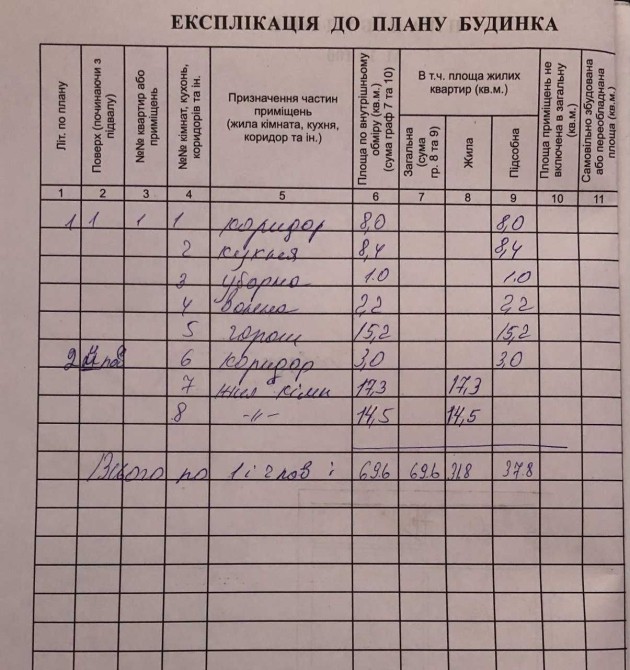 ЕКСПЛІКАЦІЯ ДО ПЛАНУ БУДИНКА
Літ. по плану
Поверх (починаючи з підвалу)
№№ квартир або приміщень
№№ кімнат, кухонь, коридорів та ін.
Призначення частин
приміщень
(жила кімната, кухня,
коридор та ін.)
Площа по внутрішньому обміру (кв.м.) (сума граф 7 та 10)
В т.ч. площа жилих
квартир (кв.м.)
Загальна (сума гр. 8 та 9)
Жила
Підсобна
Площа приміщень не включена в загальну (кв.м.)
Самовільно збудована або переобладнана площа (кв.м.)
1 2 3 4 5 6 7 8 9 10 11
1 1 1 1 коридор 8,0 8,0
2 кухня 8,4 8,4
3 уборна 1.0 1.0
4 ванна 2,2 2,2
5 гараж 15,2 15,2
2 пов 6 коридор 3,0 3,0
7 жил кімн 17,3 17,3
8 -//- 14,5 14,5
Всього по 1 і 2 пов : 69.6 69.6 31.8 37.8